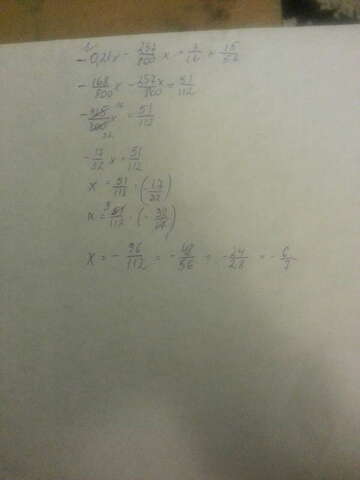 -0,21x - 257/800 x = 3/16 + 15/56
-168/800 x - 257/800 x = 51/112
-425/800 x = 51/112
-17/32 x = 51/112
x = 51/112 : (17/32)
x = 51/112 · (-32/17)
x = -96/112 = -48/56 = -24/28 = -6/7